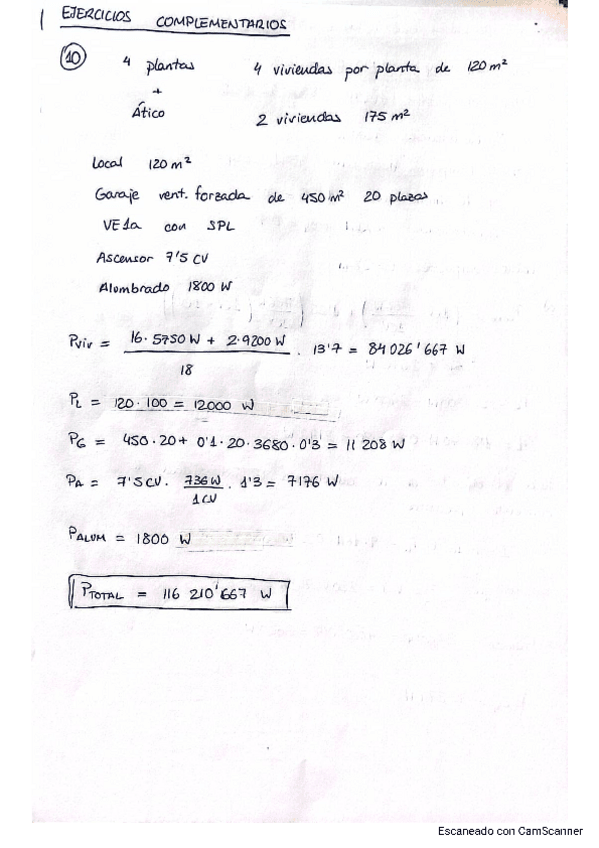 EJERCICIOS COMPLEMENTARIOS
10 4 plantas 4 viviendas por planta de 120 m²
+
Ático 2 viviendas 175 m²
Local 120 m²
Garaje vent. forzada de 450 m² 20 plazas
VE1a con SPL
Ascensor 7'5 CV
Alumbrado 1800 W
Pviv = (16·5750 W + 2·9200 W) / 18 · 13'7 = 84 026'667 W
PL = 120·100 = 12000 W
PG = 450·20 + 0'1·20·3680·0'3 = 11 208 W
PA = 7'5 CV · 736 W / 1 CV · 1'3 = 7176 W
PALUM = 1800 W
PTOTAL = 116 210'667 W
Escaneado con CamScanner